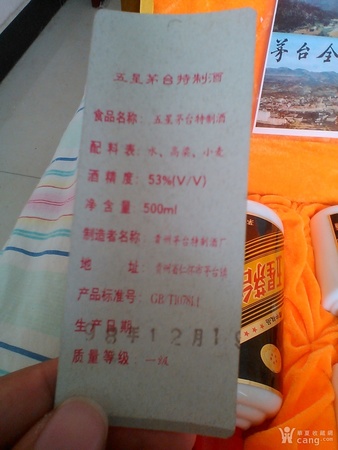 五星茅台特制酒
食品名称：五星茅台特制酒
配料表：水、高粱、小麦
酒精度：53%(V/V)
净含量：500ml
制造者名称：贵州茅台特制酒厂
地址：贵州省仁怀市茅台镇
产品标准号：GB/T10781.1
生产日期
98年12月19
质量等级：一级
茅台全
五星茅台
华夏收藏网
cang.com